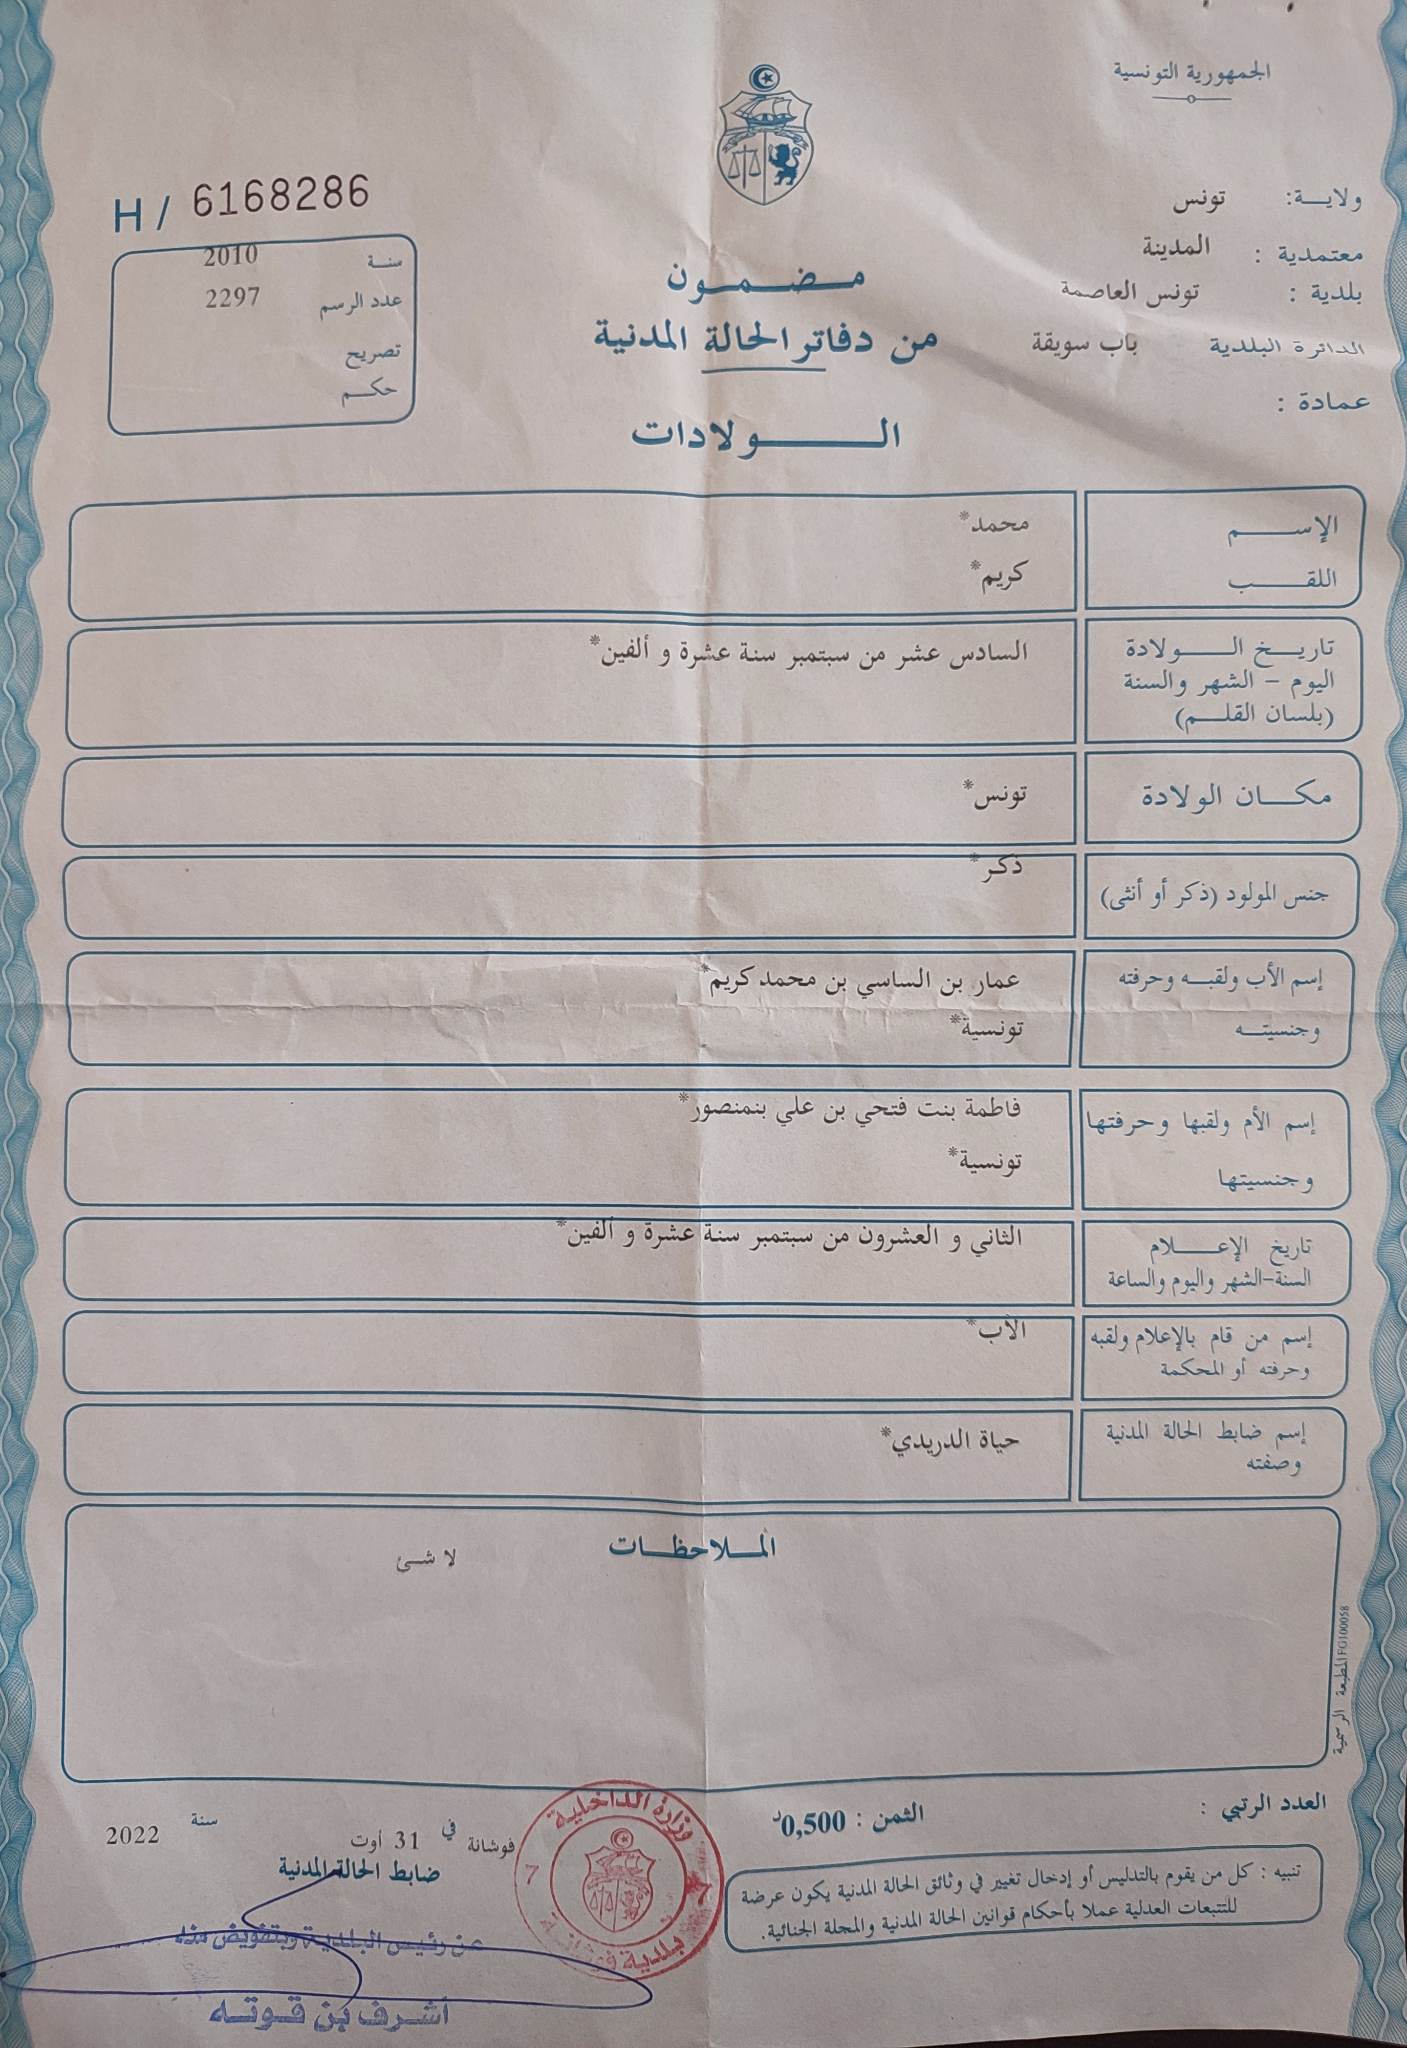 الجمهورية التونسية
ولايـــة: تونس
معتمدية : المدينة
بلدية : تونس العاصمة
الدائرة البلدية باب سويقة
عمادة :
H / 6168286
سنــة 2010
عدد الرسم 2297
تصريح
حكــم
مـضـمـون
من دفاتر الحالة المدنية
الــولادات
الإســـم محمد*
اللقـــب كريم*
تاريــخ الـــولادة السادس عشر من سبتمبر سنة عشرة و ألفين*
اليوم - الشهر والسنة
(بلسان القلــم)
مكــان الولادة تونس*
جنس المولود (ذكر أو أنثى) ذكر*
إسم الأب ولقبــه وحرفته عمار بن الساسي بن محمد كريم*
وجنسيتــه تونسية*
إسم الأم ولقبها وحرفتها فاطمة بنت فتحي بن علي بنمنصور*
وجنسيتها تونسية*
تاريخ الإعـــلام الثاني و العشرون من سبتمبر سنة عشرة و ألفين*
السنة-الشهر واليوم والساعة
إسم من قام بالإعلام ولقبه الأب*
وحرفته أو المحكمة
إسم ضابط الحالة المدنية حياة الدريدي*
وصفته
المــلاحظــات
لا شئ
المطبعة الرسمية FG100058
العدد الرتبي :
الثمن : 0,500د
تنبيه : كل من يقوم بالتدليس أو إدخال تغيير في وثائق الحالة المدنية يكون عرضة
للتتبعات العدلية عملا بأحكام قوانين الحالة المدنية والمجلة الجنائية.
وزارة الداخلية
7
بلدية فوشانة
فوشانة في 31 أوت سنة 2022
ضابط الحالة المدنية
عن رئيس البلدية وبتفويض منه
أشرف بن قوته